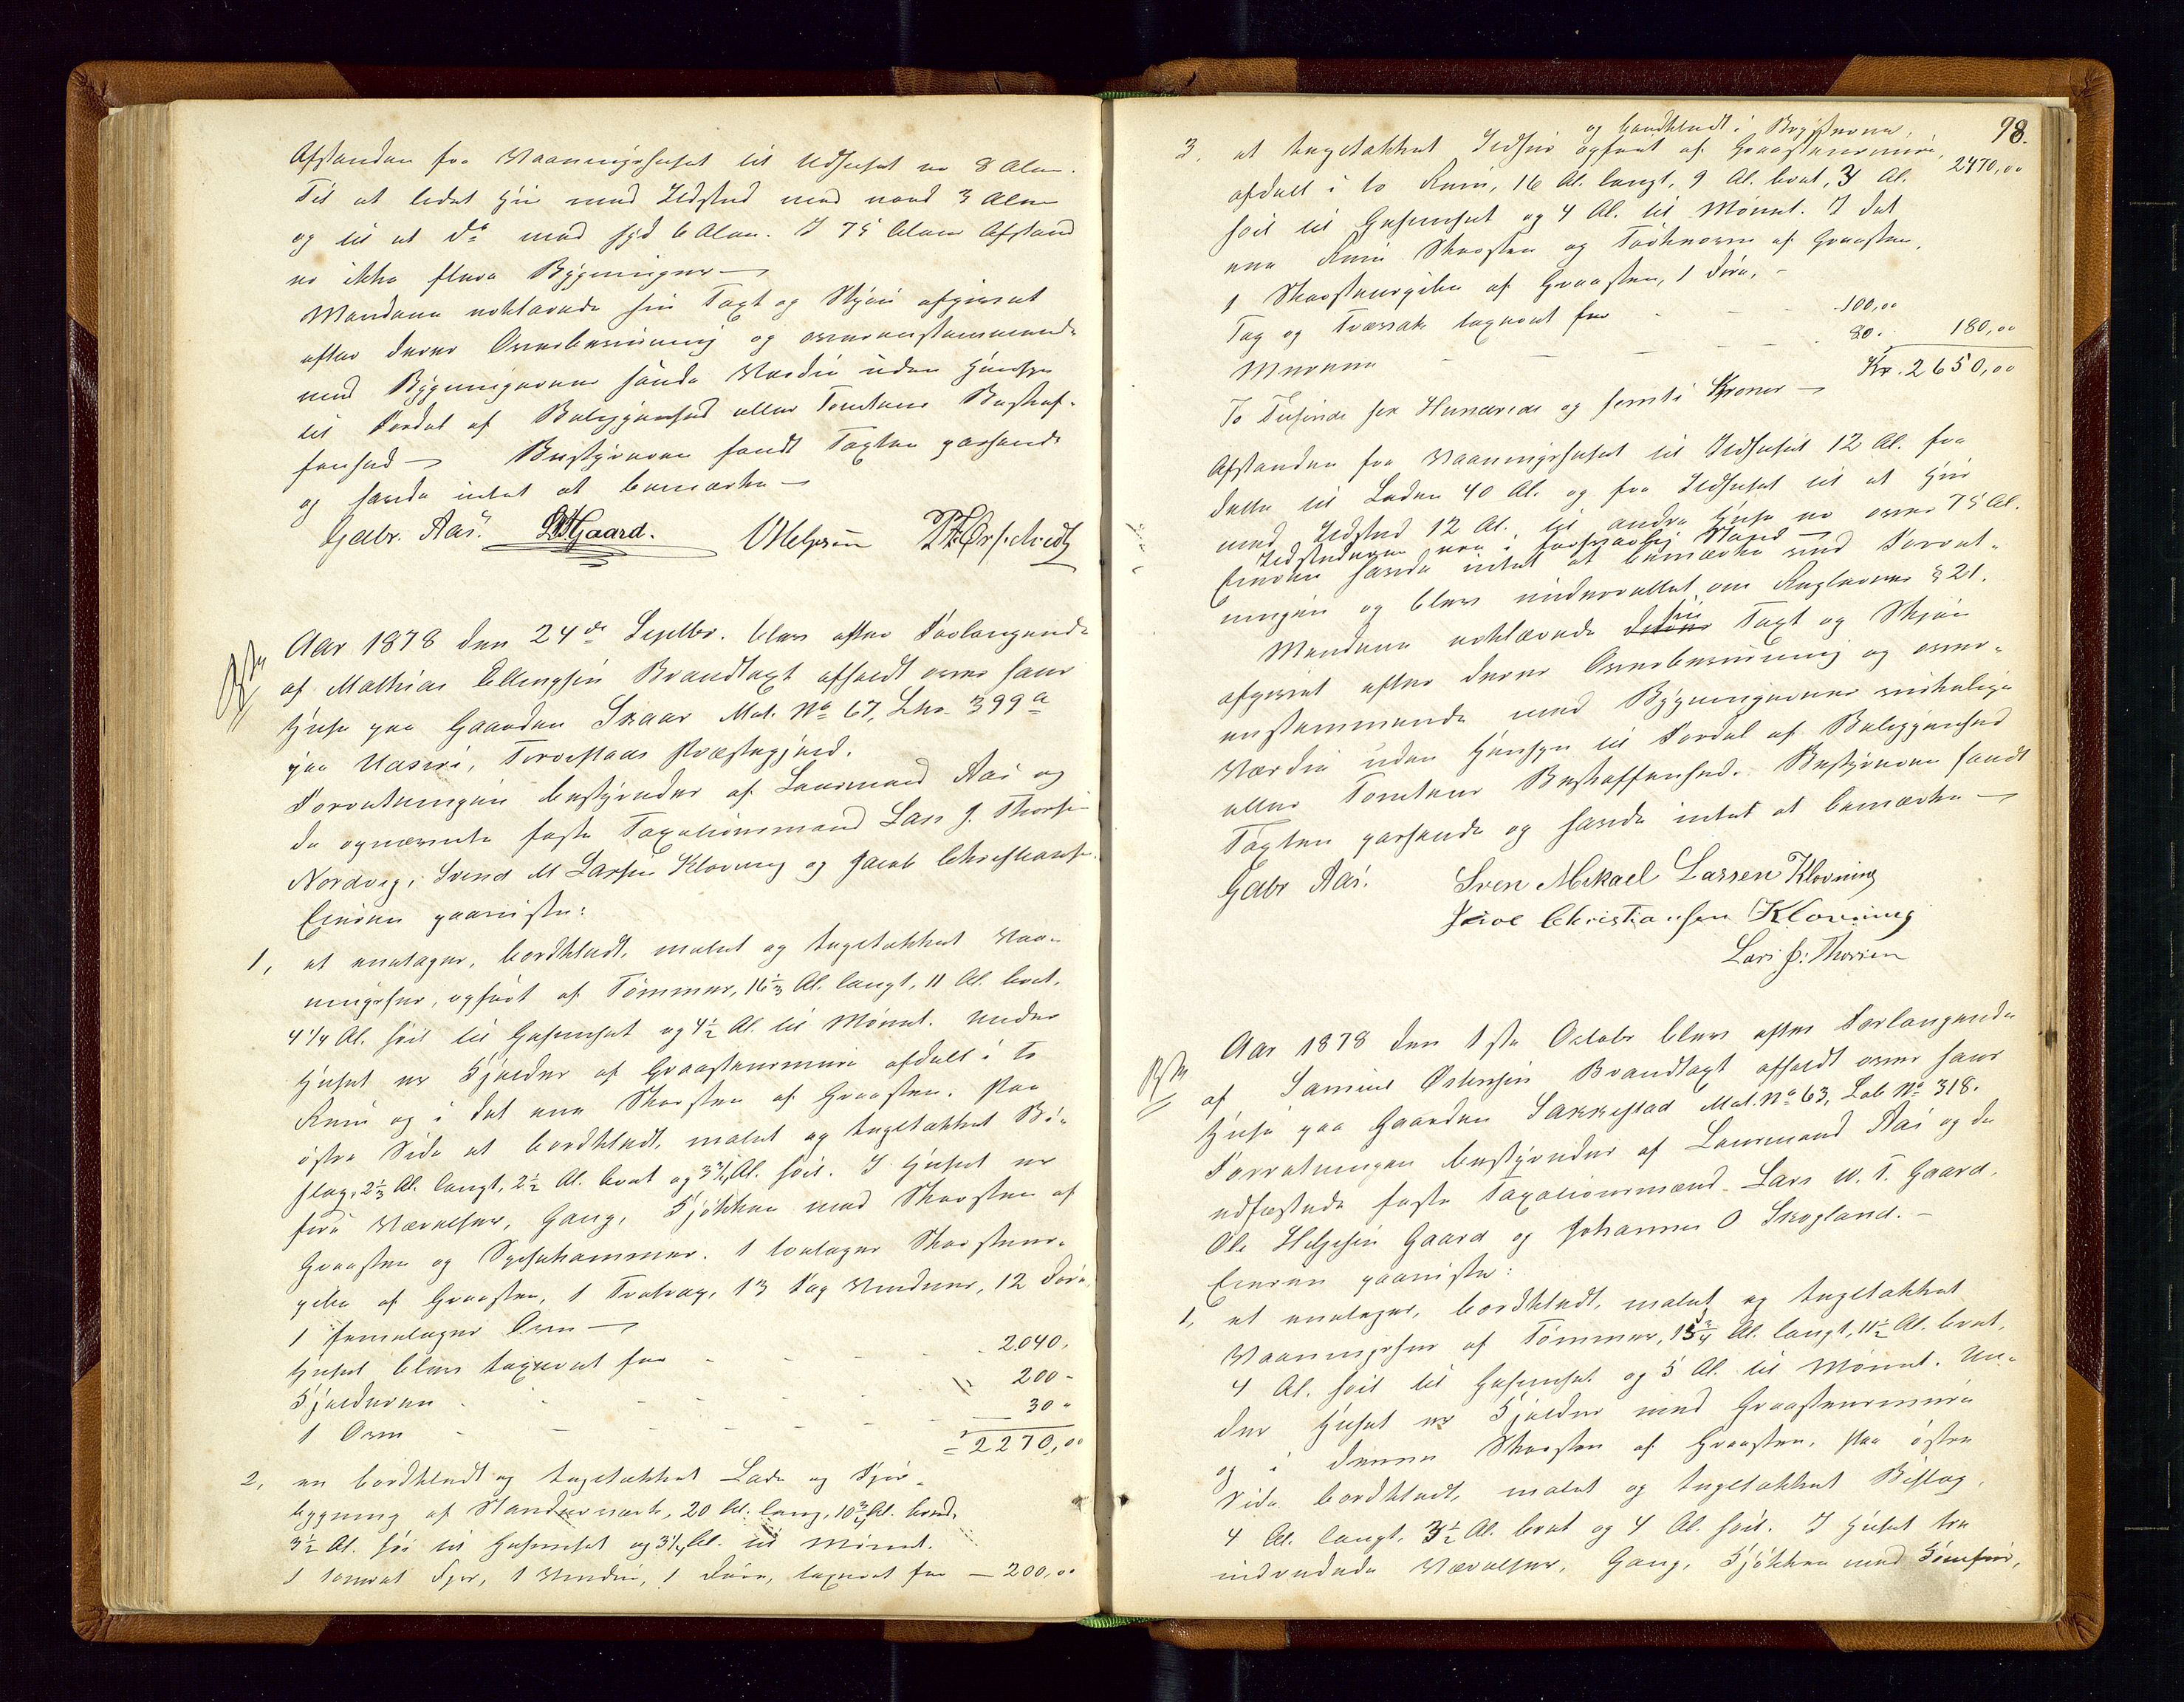 Afstanden fra Vaaningshuset til Udhuset er 8 Alen.
Til et ledet Hus med Ildsted mod nord 3 Alen
og til et do mod syd 6 Alen. I 75 Alens Afstand
er ikke flere Bygninger —
Mændene erklærede sin Taxt og Skjøn afgivet
efter deres Overbeviisning og overensstemmende
med Bygningernes sande Værdi uden Hensyn
til Fordel af Beliggenhed eller Tomtens Beskaf-
fenhed — Bestyreren fandt Taxten passende
og havde intet at bemærke —
Gdbr. Aas. LWTGaard. OHelgesen
Afst
Aar 1878 den 24de Septbr. blev efter Forlangende
af Mathias Ellingsen Brandtaxt afholdt over hans
Huse paa Gaarden Skaar Mat. No 67, Lbr. 399a
paa Udsire, Torvestads Præstegjeld.
Forretningen bestyredes af Lensmand Aas og
de opnævnte faste Taxationsmænd Lars J. Thorsen
Nordvig, Svend M Larsen Klovning og Jacob Christiansen.
Eieren paaviste:
1, et enetages, bordklædt, malet og tagetækket Vaa-
ningshus, opført af Tømmer, 16 1/3 Al. langt, 11 Al. bredt,
4 1/4 Al. høit til Gesimset og 4 1/2 Al. til Mønnet. Under
Huset er Kjælder af Graastensmure afdelt i to
Rum og i det ene Skorsten af Graasten. Paa
østre Side et bordklædt, malet og tagetækket Bi-
slag, 2 1/3 Al. langt, 2 1/2 Al. bredt og 3 3/4 Al. høit. I Huset er
fire Værelser, Gang, Kjøkken med Skorsten af
Graasten og Spisekammer. 1 toetages Skorstens-
pibe af Graasten, 1 Trætrap, 13 Fag Vinduer, 12 Døre,
1 femetages Ovn —
Huset blev taxeret for - - - 2040.
Kjælderen - - - 200 -
1 Ovn - - - 30 -
= 2270,00
2, en bordklædt og tagetækket Lade og Fjøs-
bygning af Standerværk, 20 Al. lang, 10 3/4 Al. bred,
3 1/2 Al. høi til Gesimset og 3 1/4 Al. til Mønnet.
1 tømret Fjøs, 1 Vindue, 1 Døre, taxeret for — 200,00
98.
og bordklædt i Brysterne,
3, et tagetækket Ildhus opført af Graastensmure,
afdelt i to Rum, 16 Al. langt, 9 Al. bredt, 3 Al. 2470,00
høit til Gesimset og 4 Al. til Mønnet. I det
ene Rum Skorsten og Tørkeovn af Graasten,
1 Skorstenspibe af Graasten, 1 Døre, -
Tag og Tværvæk taxeret for - - - 100,00
Murene - - - 80. 180,00
Kr. 2650,00
To Tusinde sex Hundrede og femti Kroner —
Afstanden fra Vaaningshuset til Ildhuset 12 Al. fra
dette til Laden 40 Al. og fra Ildhuset til et Hus
med Ildsted 12 Al. til andre Huse er over 75 Al.
Ildstederne ere i forsvarlig Stand —
Eieren havde intet at bemærke ved Forret-
ningen og blev underrettet om Reglernes § 21.
Mændene erklærede deres sin Taxt og Skjøn
afgivet efter deres Overbeviisning og over-
ensstemmende med Bygningernes virkelige
Værdi uden Hensyn til Fordel af Beliggenhed
eller Tomtens Beskaffenhed. Bestyreren fandt
Taxten passende og havde intet at bemærke —
Gdbr Aas. Sven Mikael Larsen Klovning
Jacob Christiansen Klovning
Lars J. Thorsen
Afst
Aar 1878 den 1ste Octobr blev efter Forlangende
af Samuel Østensen Brandtaxt afholdt over hans
Huse paa Gaarden Sakkestad Mat. No 63, Lob No 318.
Forretningen bestyredes af Lensmand Aas og de
udsædede faste Taxationsmænd Lars W. T. Gaard,
Ole Helgesen Gaard og Johannes O Skogland. -
Eieren paaviste:
1, et enetages, bordklædt, malet og tagetækket
Vaaningshus af Tømmer, 15 3/4 Al. langt, 11 1/2 Al. bredt,
4 Al. høit til Gesimset og 5 Al. til Mønnet. Un-
der Huset er Kjælder med Graastensmure
og i denne Skorsten af Graasten, paa østre
Side bordklædt, malet og tagetækket Bislag,
4 Al. langt, 3 1/2 Al. bredt og 4 Al. høit. I Huset tre
indredede Værelser, Gang, Kjøkken med Komfur,